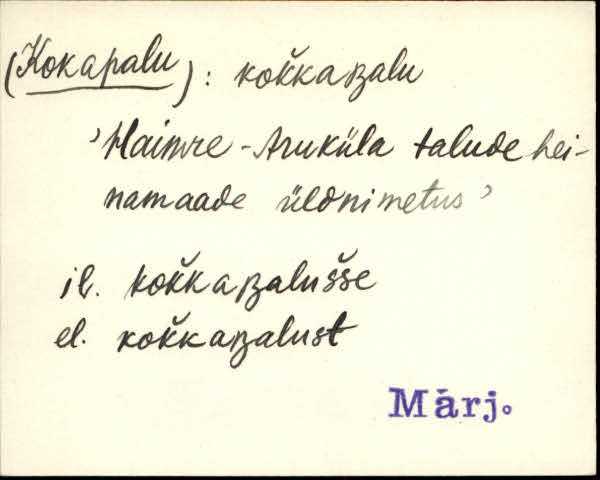 (Kokapalu): kok̆kaʙalu
'Haimre-Aruküla talude hei-
namaade üldnimetus'
il. kok̆kaʙalus̆se
el. kok̆kaʙalust
Märj.